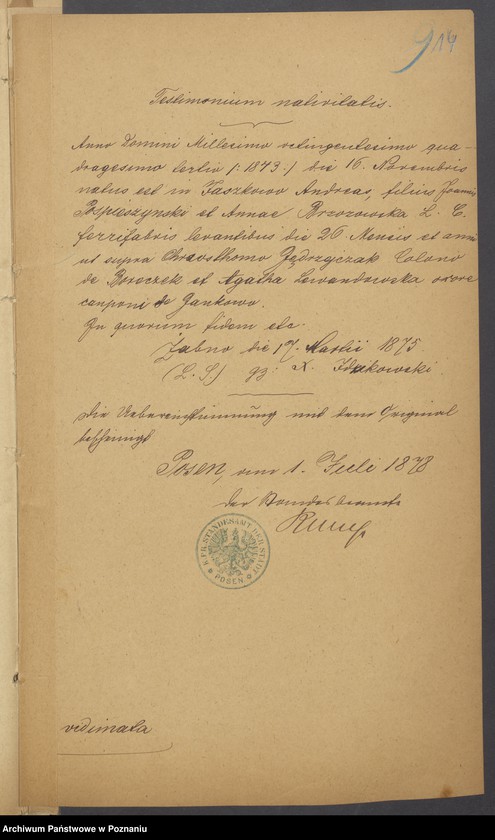 914
Testimonium nativitatis.
Anno Domini Millesimo octingentesimo qua-
dragesimo tertio /: 1843 :/ die 16. Novembris
natus est in Jaszkowo Andreas, filius Joannis
Pospieszynski et Annae Brzozowska L. C.
ferrifabris levantibus die 26 Mensis et anni
ut supra Chrisosthomo Jędrzyczak Colono
de Boreczek et Agatha Lewandowska uxore
cauponi de Jankowo.
In quorum fidem etc.
Żabno die 17. Martii 1875
(L. S) gz. X.
Die Uebereinstimmung mit dem Original
bescheinigt
Posen, den 1. Juli 1878
Der Standesbeamte
K. PR. STANDESAMT DER STADT
* POSEN *
vidimata
Archiwum Państwowe w Poznaniu